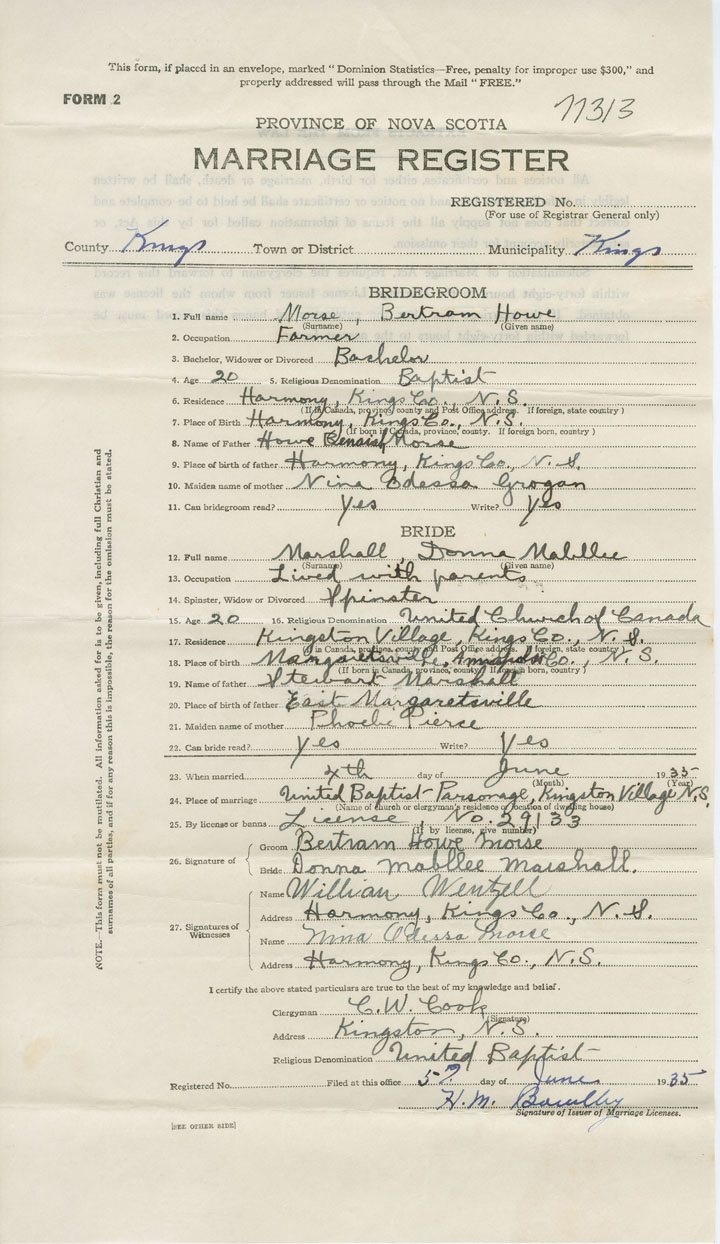 This form, if placed in an envelope, marked "Dominion Statistics—Free, penalty for improper use $300," and
properly addressed will pass through the Mail "FREE."
FORM 2
11313
PROVINCE OF NOVA SCOTIA
MARRIAGE REGISTER
REGISTERED No.
(For use of Registrar General only)
County Kings Town or District Municipality Kings
BRIDEGROOM
1. Full name Morse, Bertram Howe
(Surname) (Given name)
2. Occupation Farmer
3. Bachelor, Widower or Divorced Bachelor
4. Age 20 5. Religious Denomination Baptist
6. Residence Harmony, Kings Co., N.S.
(If in Canada, province, county and Post Office address. If foreign, state country)
7. Place of Birth Harmony, Kings Co., N.S.
(If born in Canada, province, county. If foreign born, country)
8. Name of Father Howe Morse
9. Place of birth of father Harmony, Kings Co., N.S.
10. Maiden name of mother Nina Odessa Grogan
11. Can bridegroom read? Yes Write? Yes
BRIDE
12. Full name Marshall, Donna Mabllee
(Surname) (Given name)
13. Occupation Lived with parents
14. Spinster, Widow or Divorced Spinster
15. Age 20 16. Religious Denomination United Church of Canada
17. Residence Kingston Village, Kings Co., N.S.
(If in Canada, province, county and Post Office address. If foreign, state country)
18. Place of birth Margaretsville, Co., N.S.
(If born in Canada, province, county. If foreign born, country)
19. Name of father Stewart Marshall
20. Place of birth of father East Margaretsville
21. Maiden name of mother Phoebe Pierce
22. Can bride read? Yes Write? Yes
23. When married 4th day of June 1935
(Month) (Year)
24. Place of marriage United Baptist Parsonage, Kingston Village N.S.
(Name of church or clergyman's residence or location of dwelling house)
25. By license or banns License, No. 29133
(If by license, give number)
26. Signature of
Groom Bertram Howe Morse
Bride Donna Mabllee Marshall.
27. Signatures of Witnesses
Name William Wentzell
Address Harmony, Kings Co., N.S.
Name Nina Odessa Morse
Address Harmony, Kings Co., N.S.
I certify the above stated particulars are true to the best of my knowledge and belief.
Clergyman C. W. Cook
(Signature)
Address Kingston, N.S.
Religious Denomination United Baptist
Registered No. Filed at this office 5 day of June 1935
H. M.
Signature of Issuer of Marriage Licenses.
[SEE OTHER SIDE]
NOTE.—This form must not be mutilated. All information asked for is to be given, including full Christian and
surnames of all parties, and if for any reason this is impossible, the reason for the omission must be stated.